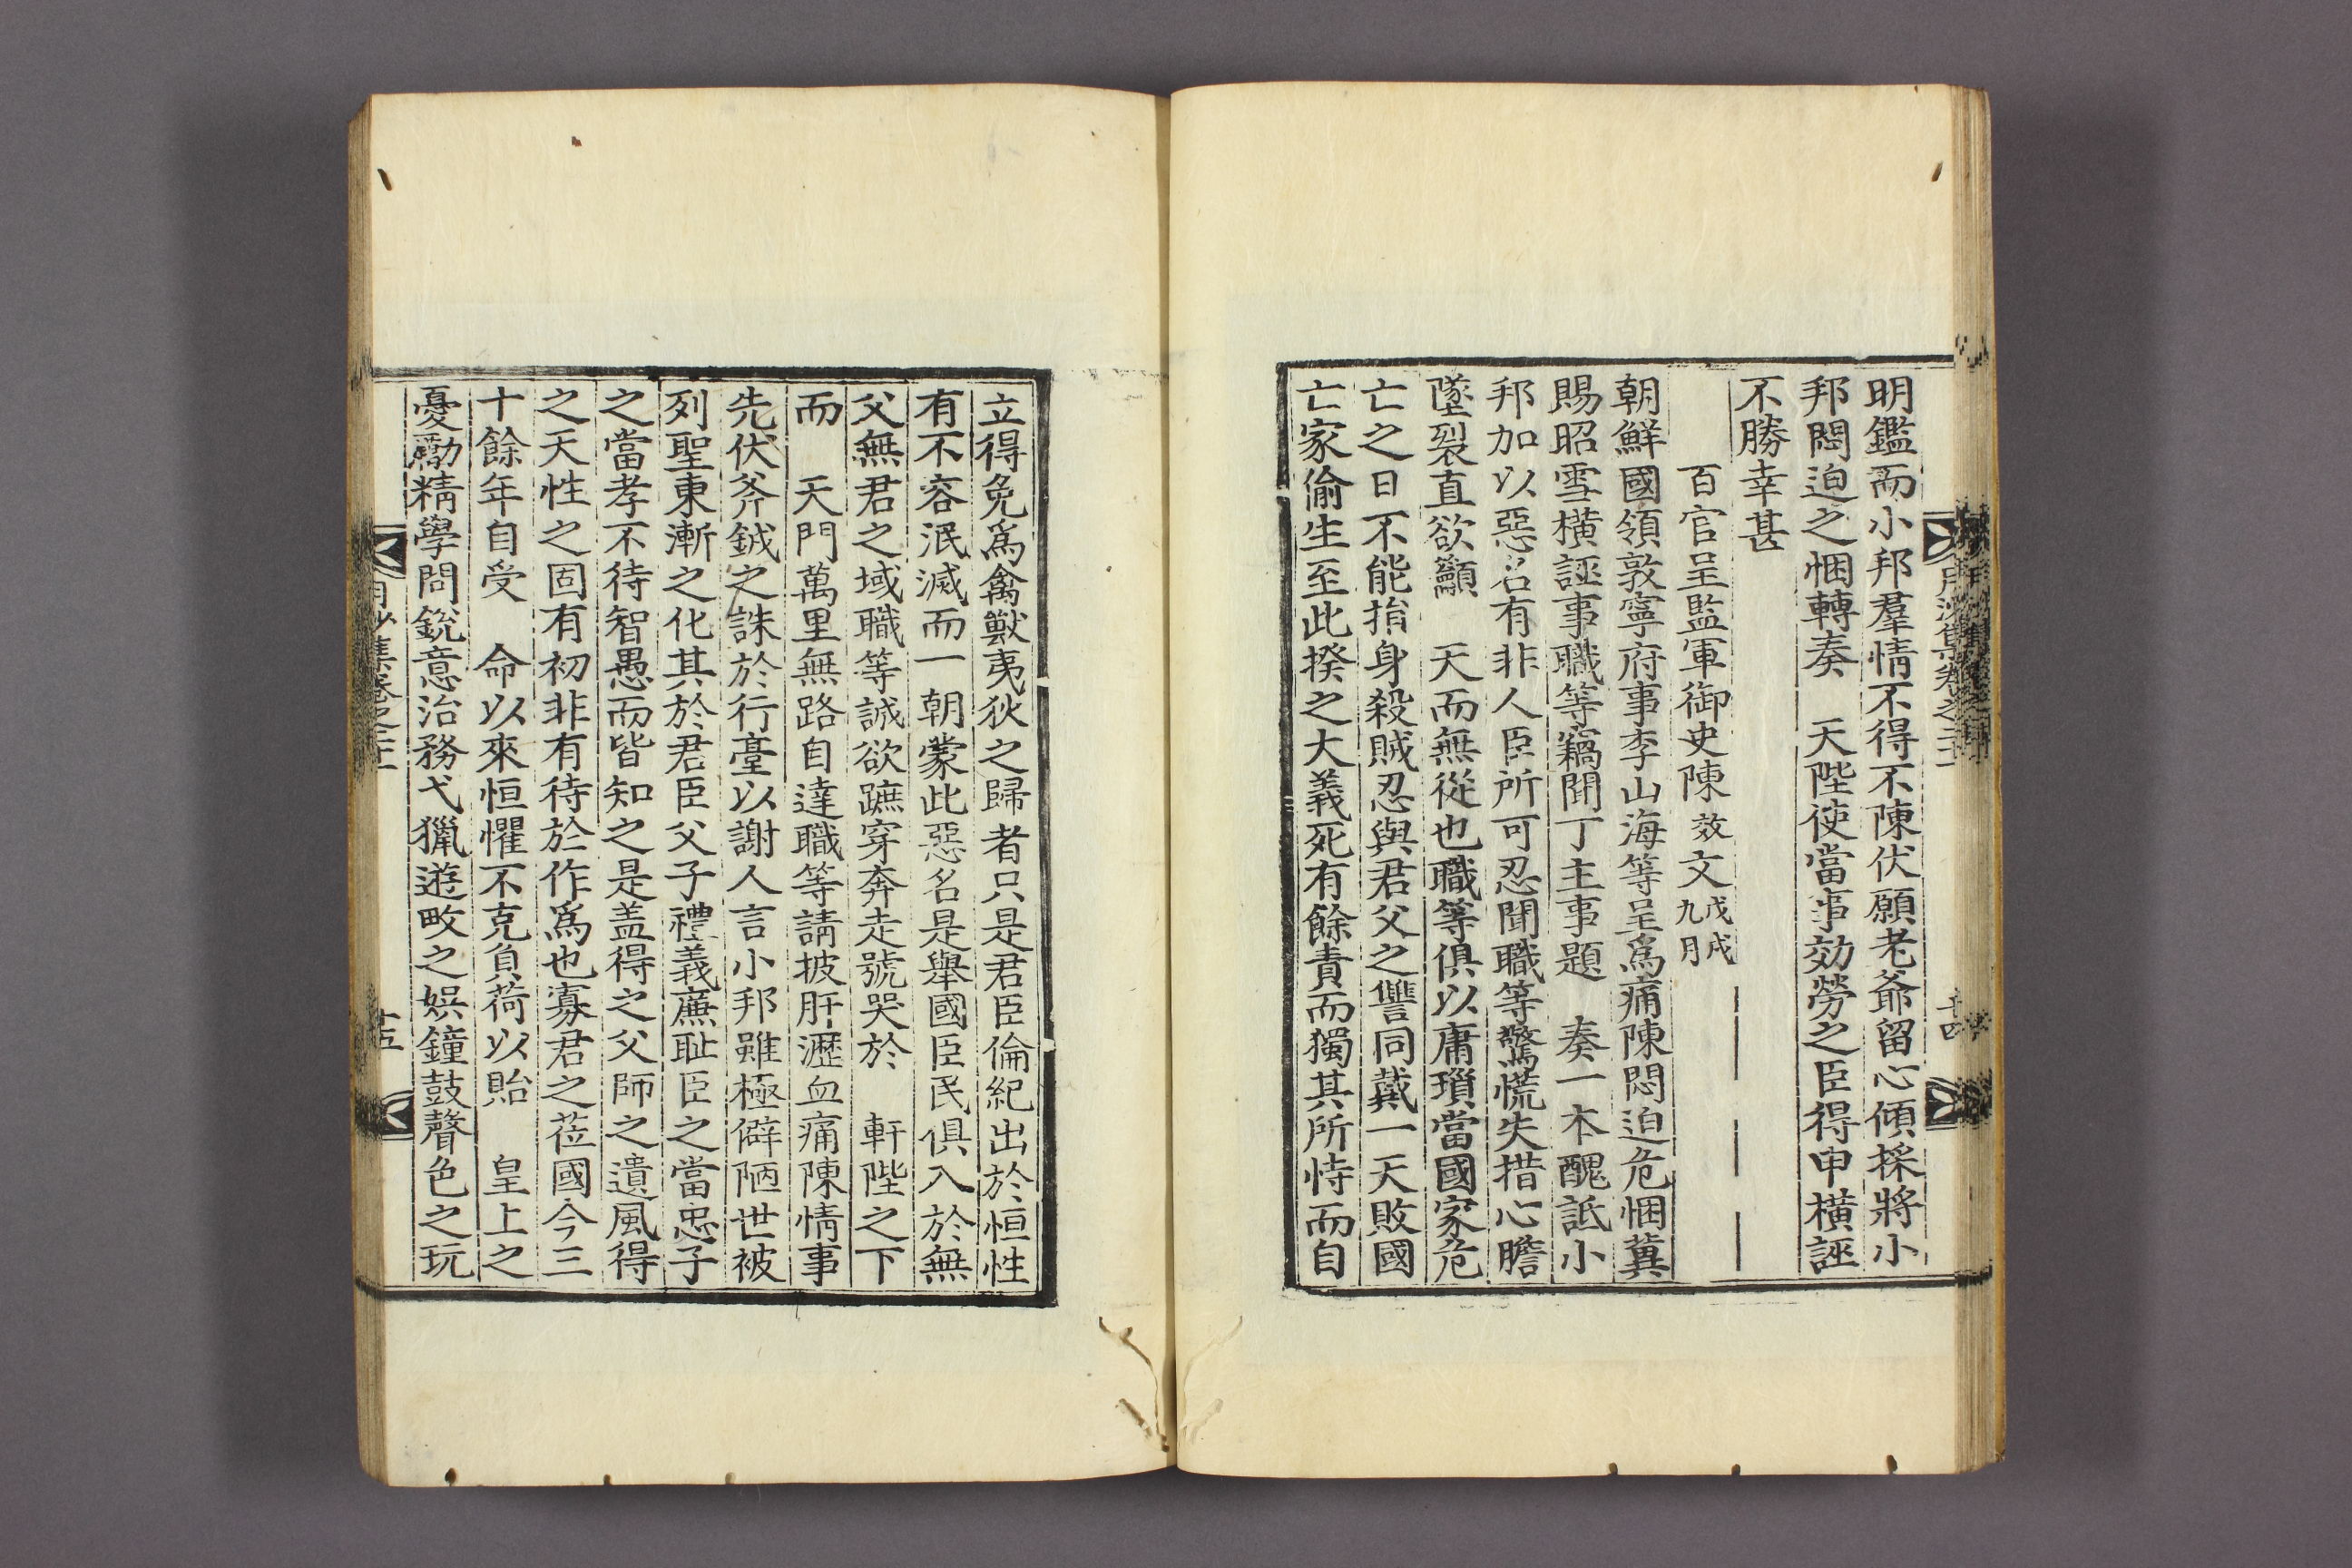 明鑑而小邦羣情不得不陳伏願老爺留心傾採將小
邦悶迫之悃轉奏　天陛使當事効勞之臣得申橫誣
不勝幸甚
百官呈監軍御史陳效文戊戌九月
朝鮮國領敦寧府事李山海等呈爲痛陳悶迫危悃冀
賜昭雪橫誣事職等竊聞丁主事題　奏一本醜詆小
邦加以惡名有非人臣所可忍聞職等驚慌失措心膽
墜裂直欲籲　天而無從也職等俱以庸瑣當國家危
亡之日不能捐身殺賊忍與君父之讐同戴一天敗國
亡家偷生至此揆之大義死有餘責而獨其所恃而自
立得免爲禽獸夷狄之歸者只是君臣倫紀出於恒性
有不容泯滅而一朝蒙此惡名是舉國臣民俱入於無
父無君之域職等誠欲蹠穿奔走號哭於　軒陛之下
而　天門萬里無路自達職等請披肝瀝血痛陳情事
先伏斧鉞之誅於行臺以謝人言小邦雖極僻陋世被
列聖東漸之化其於君臣父子禮義廉耻臣之當忠子
之當孝不待智愚而皆知之是盖得之父師之遺風得
之天性之固有初非有待於作爲也寡君之莅國今三
十餘年自受　命以來恒懼不克負荷以貽　皇上之
憂勵精學問銳意治務弋獵遊畋之娛鐘鼓聲色之玩
月沙集卷之二十一
十五